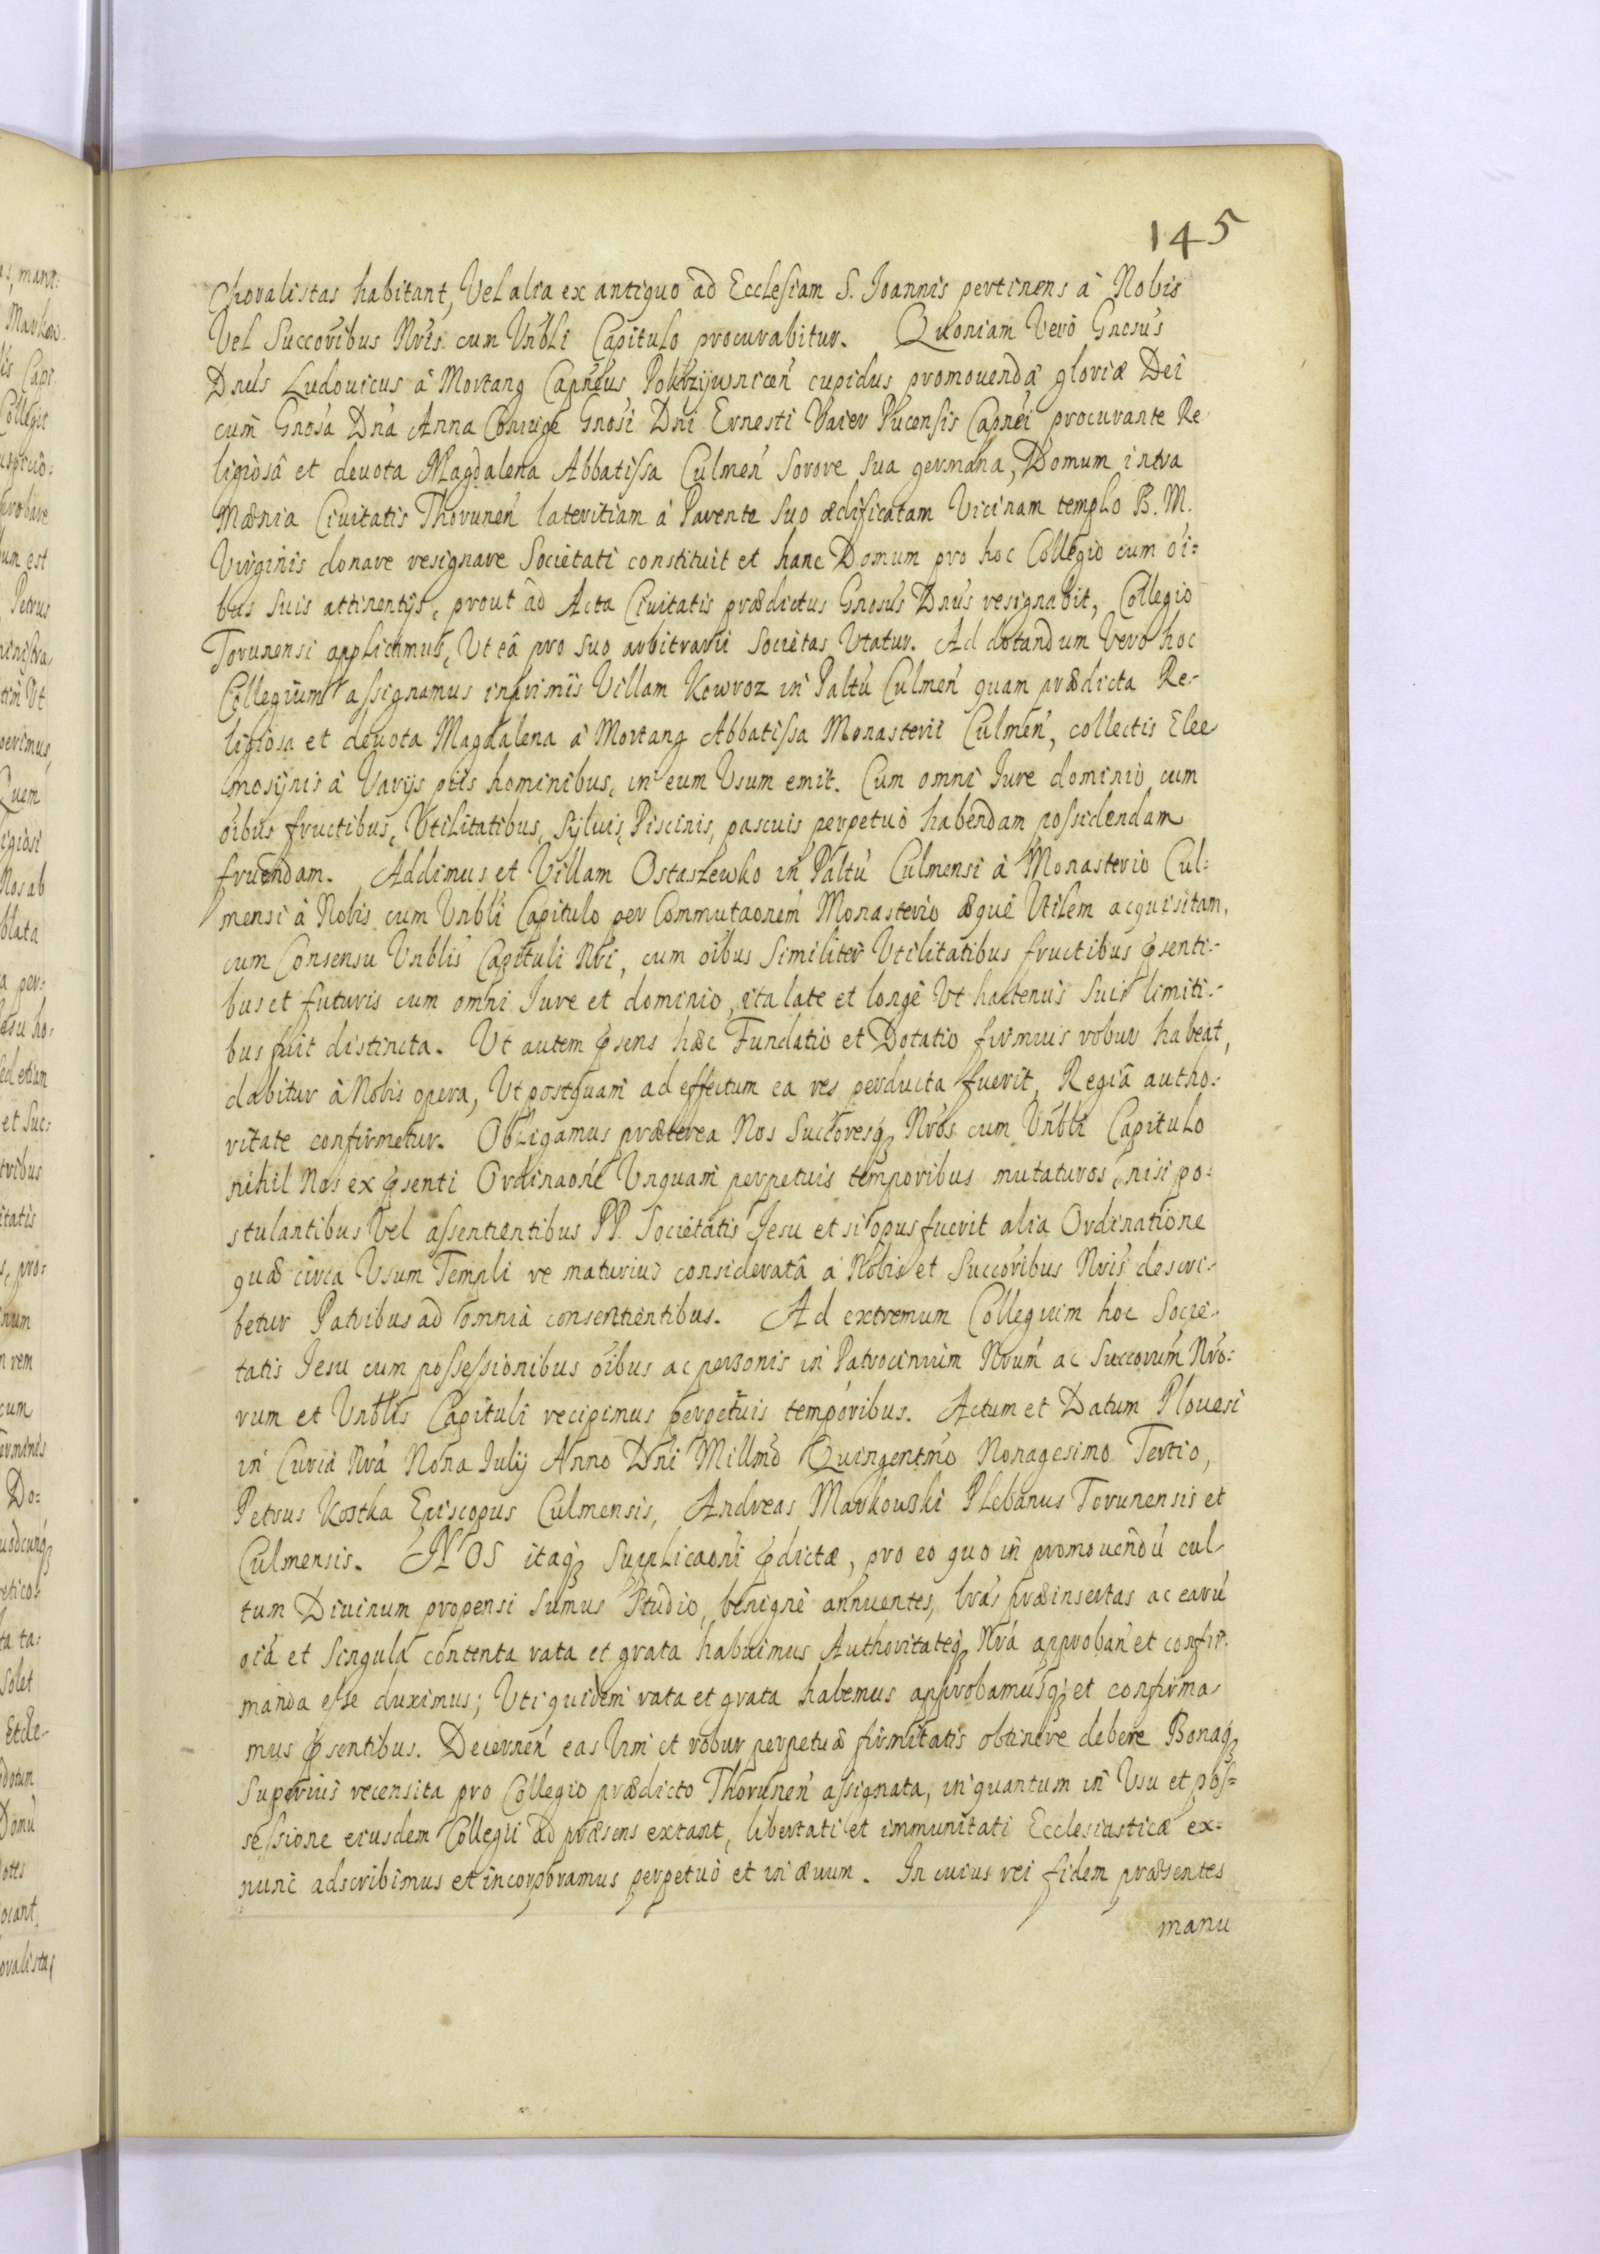 145
Choralistas habitant, Vel alia ex antiquo ad Ecclesiam S. Ioannis pertinens à Nobis
Vel Succoribus Nris cum Vnbli Capitulo procurabitur. Quoniam Verò Gnosus
Dnus Ludouicus à Mortang Capneus Pokrzywnicen cupidus promouendæ gloriæ Dei
cum Gnosa Dna Anna Coniuge Gnosi Dni Ernesti Vaier Pucensis Capnei procurante Re
ligiosâ et deuota Magdalena Abbatissa Culmen Sorore Sua germana, Domum intra
Mænia Ciuitatis Thorunen lateritiam à Parente Suo ædificatam Vicinam templo B. M.
Virginis donare resignare Societati constituit et hanc Domum pro hoc Collegio cum oi=
bus Suis attinentijs, prout ad Acta Ciuitatis prædictus Gnosus Dnus resignabit, Collegio
Torunensi applicamus, Ut eâ pro suo arbitrario Societas Vtatur. Ad dotandum Vero hoc
Collegium assignamus inprimis Villam Kowroz in Paltu Culmen quam prædicta Re-
ligiosa et deuota Magdalena à Mortang Abbatissa Monasterii Culmen, collectis Elee
mosijnis à Varijs piis hominibus, in eum Usum emit. Cum omni Iure dominio cum
oibus fructibus, Vtilitatibus, Syluis, Piscinis, pascuis perpetuò habendam possidendam
fruendam. Addimus et Villam Ostaszewko in Paltu Culmensi à Monasterio Cul=
mensi à Nobis cum Vnbli Capitulo per Commutaonem Monasterio æque Vtilem acquisitam,
cum Consensu Vnblis Capituli Nri, cum oibus Similiter Vtilitatibus fructibus psenti-
bus et futuris cum omni Iure et dominio, ita late et longè Vt hactenus Suis limiti-
bus fuit distincta. Ut autem psens hæc Fundatio et Dotatio firmius robur habeat,
dabitur à Nobis opera, Ut postquam ad effectum ea res perducta fuerit, Regiâ autho-
ritate confirmetur. Obligamus præterea Nos Succoresq Nros cum Vnbli Capitulo
nihil Nos ex psenti Ordinaone Unquam perpetuis temporibus mutaturos, nisi po-
stulantibus Vel assentientibus PP. Societatis Iesu et si opus fuerit alia Ordinatione
quæ circa Usum Templi re maturius considerata à Nobis et Succoribus Nris descri-
betur Patribus ad omnia consentientibus. Ad extremum Collegium hoc Socie-
tatis Iesu cum possessionibus oibus ac personis in Patrocinium Nrum ac Succorum Nro-
rum et Vnblis Capituli recipimus perpetuis temporibus. Actum et Datum Plouesi
in Curia Nrâ Nona Iulij Anno Dni Millmo Quingentmo Nonagesimo Tertio,
Petrus Kostka Episcopus Culmensis, Andreas Markowski Plebanus Torunensis et
Culmensis. NOS itaq Supplicaoni pdictæ, pro eo quo in promouendu cul-
tum Diuinum propensi Sumus Studio, benignè annuentes, lras præinsertas ac earu
oia et Singula contenta rata et grata habuimus Authoritateq Nrâ approban et confir-
manda esse duximus; Uti quidem rata et grata habemus approbamusq et confirma
mus psentibus. Decernen eas Vim et robur perpetuæ firmitatis obtinere debere Bonaq
Superius recensita pro Collegio prædicto Thorunen assignata, in quantum in Usu et pos-
sessione eiusdem Collegii ad præsens extant, libertati et immunitati Ecclesiasticæ ex=
nunc adscribimus et incorporamus perpetuò et in æuum. In cuius rei fidem præsentes
manu